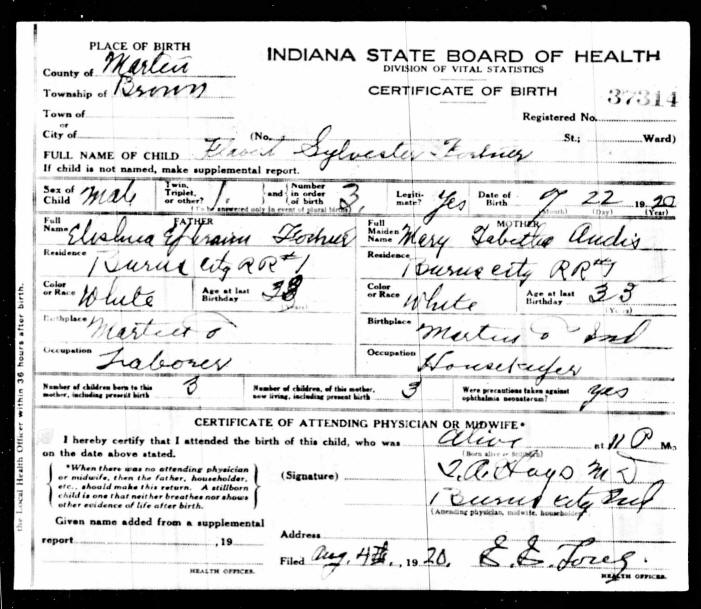 PLACE OF BIRTH
County of Martin
Township of Brown
Town of
or
City of
INDIANA STATE BOARD OF HEALTH
DIVISION OF VITAL STATISTICS
CERTIFICATE OF BIRTH
37314
Registered No.
(No. St.; Ward)
FULL NAME OF CHILD Sylvester Fortner
If child is not named, make supplemental report.
Sex of Child Male Twin, Triplet, or other? 1 and Number in order of birth 3 Legitimate? Yes Date of Birth 7 22 1920
(To be answered only in event of plural births) (Month) (Day) (Year)
FATHER
Full Name Elishua Ephraim Fortner
Residence Burns City RR #1
Color or Race White Age at last Birthday 33 (Years)
Birthplace Martin
Occupation Laborer
MOTHER
Full Maiden Name Mary Tabitha Audis
Residence Burns City RR #1
Color or Race White Age at last Birthday 33 (Years)
Birthplace Martin Ind
Occupation Housekeeper
Number of children born to this mother, including present birth 3 Number of children, of this mother, now living, including present birth 3 Were precautions taken against ophthalmia neonatorum? yes
CERTIFICATE OF ATTENDING PHYSICIAN OR MIDWIFE*
I hereby certify that I attended the birth of this child, who was Alive at 11 P M.
(Born alive or stillborn)
on the date above stated.
*When there was no attending physician
or midwife, then the father, householder,
etc., should make this return. A stillborn
child is one that neither breathes nor shows
other evidence of life after birth.
(Signature) Hays M D
Burns City Ind
(Attending physician, midwife, householder)
Given name added from a supplemental
report , 19
HEALTH OFFICER.
Address
Filed Aug. 4th, 1920.
HEALTH OFFICER.
the Local Health Officer within 36 hours after birth.